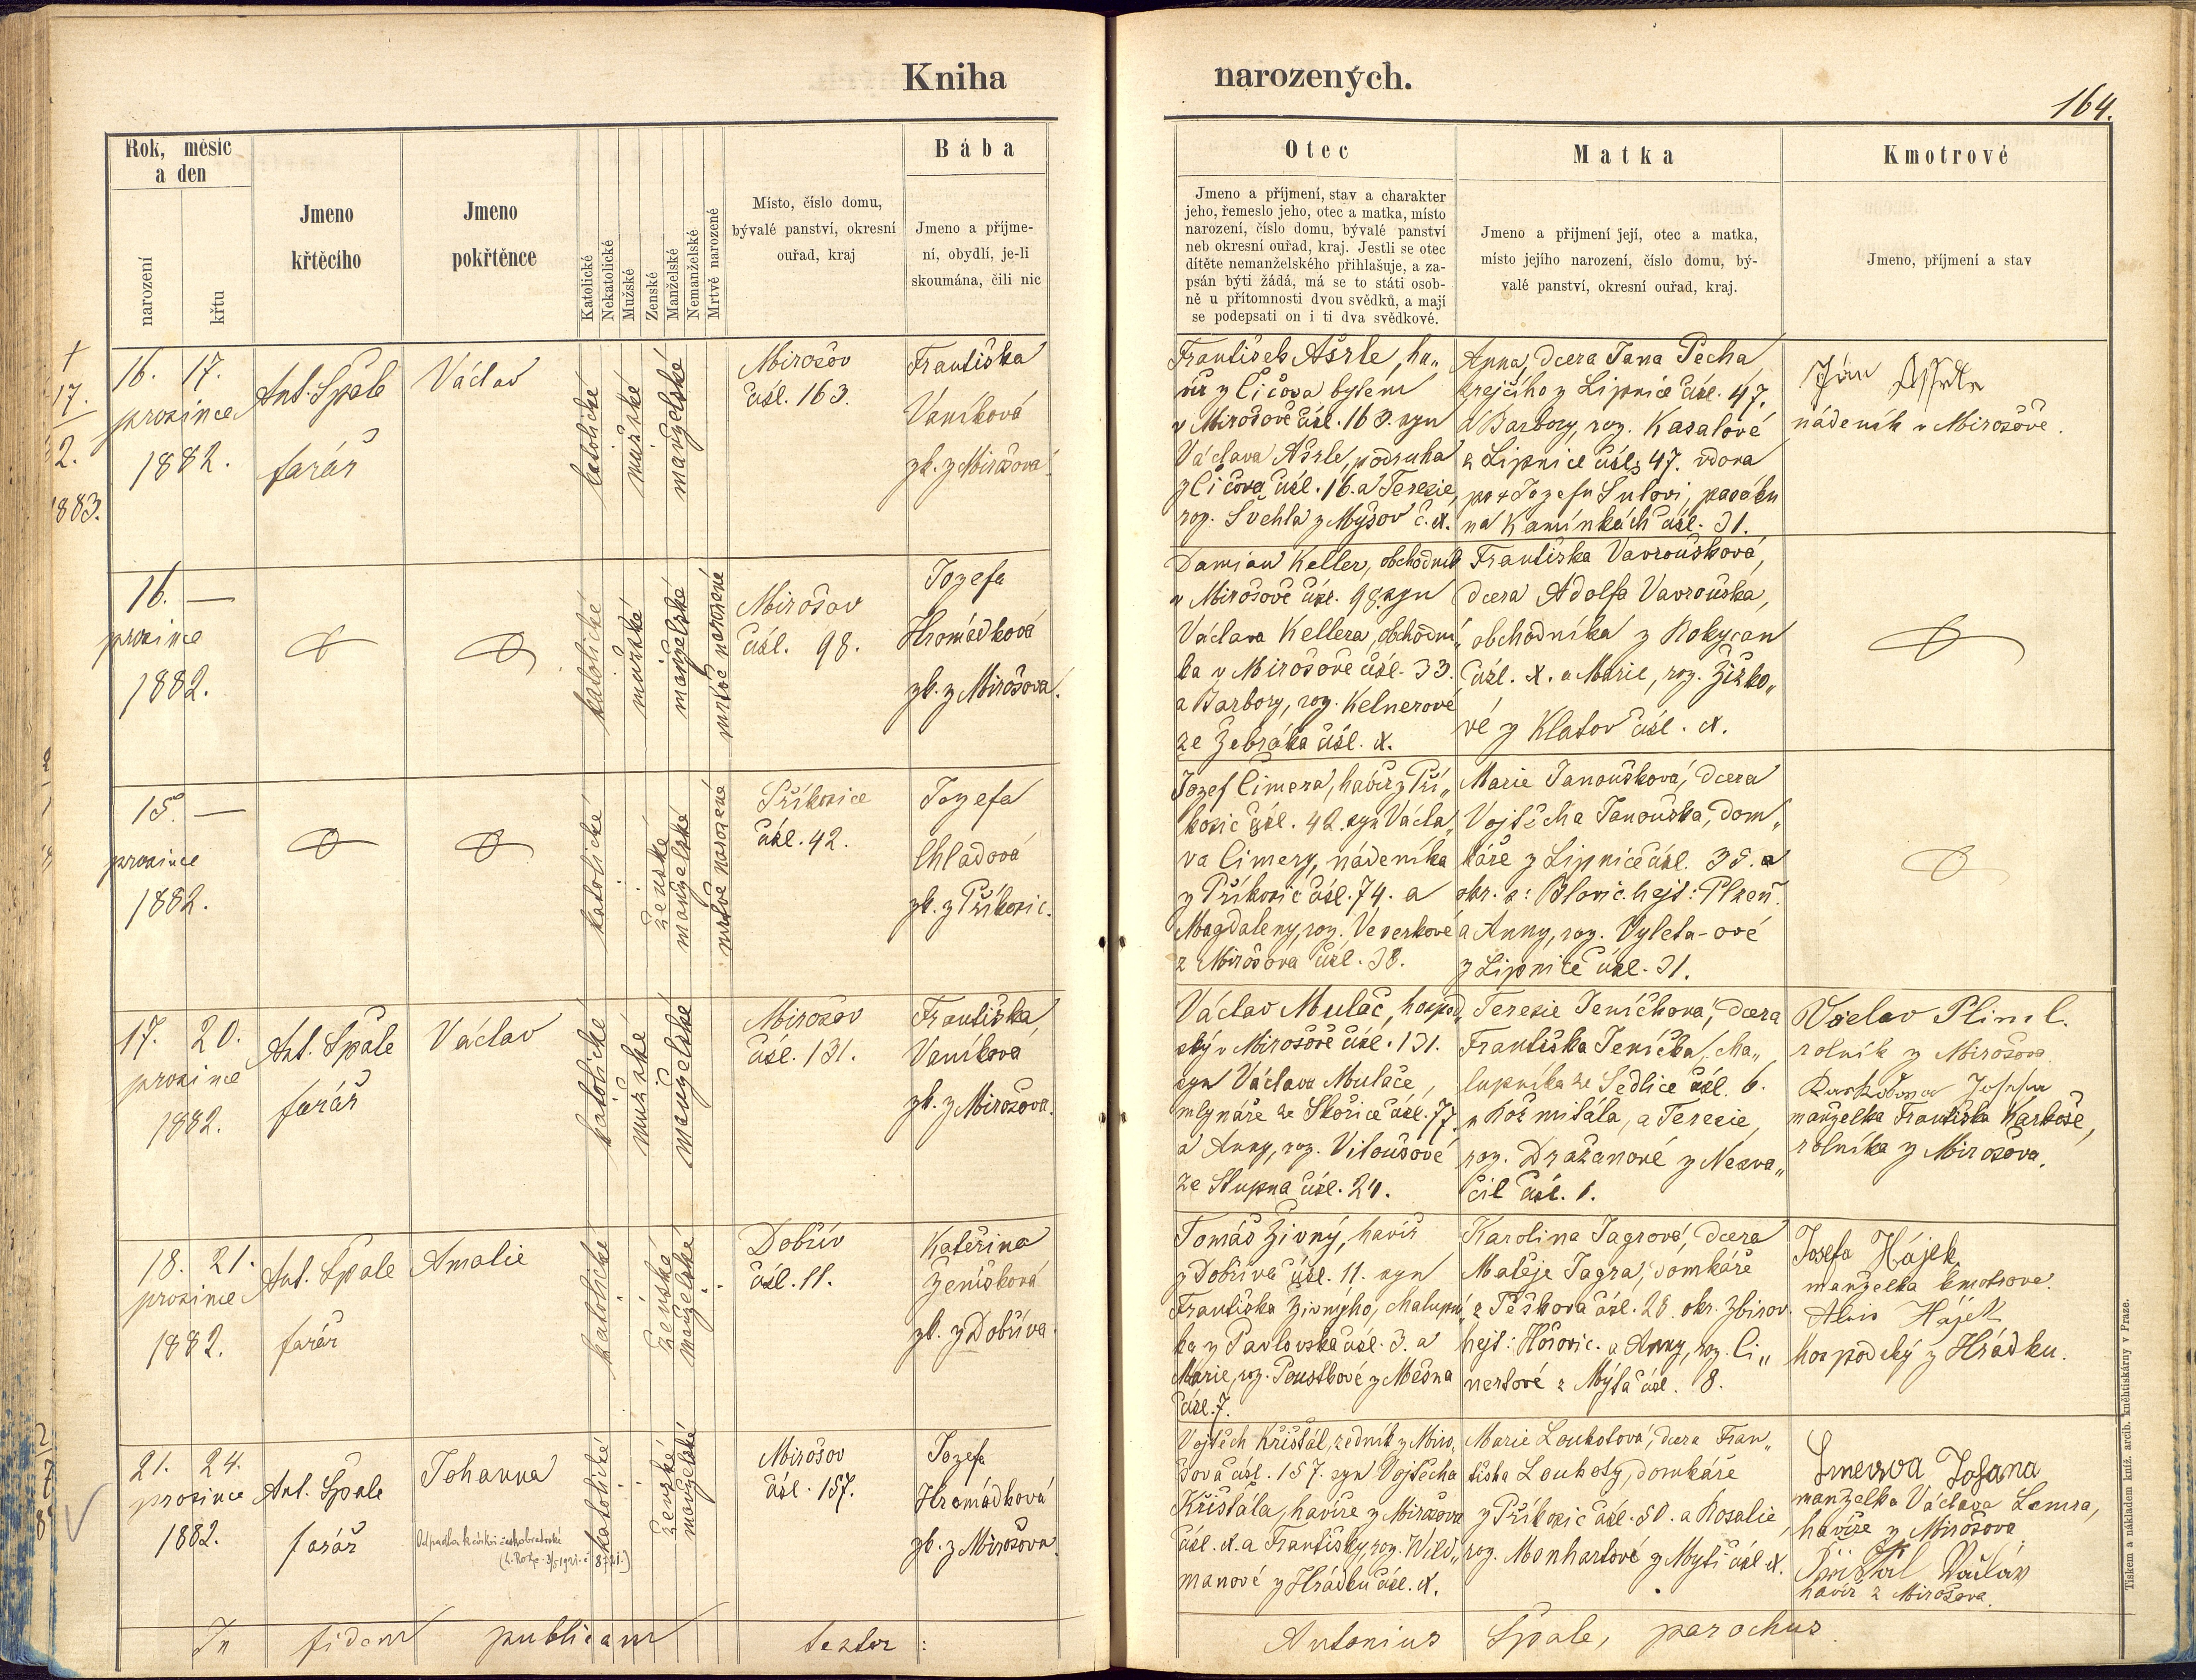 Kniha narozených.
164.
Rok, měsíc
a den
narození
křtu
Jmeno
křtěcího
Jmeno
pokřtěnce
Katolické
Nekatolické
Mužské
Ženské
Manželské
Nemanželské
Mrtvě narozené
Místo, číslo domu,
bývalé panství, okresní
ouřad, kraj
Bába
Jmeno a příjme-
ní, obydlí, je-li
skoumána, čili nic
Otec
Jmeno a příjmení, stav a charakter
jeho, řemeslo jeho, otec a matka, místo
narození, číslo domu, bývalé panství
neb okresní ouřad, kraj. Jestli se otec
dítěte nemanželského přihlašuje, a za-
psán býti žádá, má se to státi osob-
ně u přítomnosti dvou svědků, a mají
se podepsati on i ti dva svědkové.
Matka
Jmeno a přijmení její, otec a matka,
místo jejího narození, číslo domu, bý-
valé panství, okresní ouřad, kraj.
Kmotrové
Jmeno, příjmení a stav
†
17.
2.
1883.
16. 17.
prosince
1882.
Ant. Špale
farář
Václav
katolické
mužské
manželské
Mirošov
čísl. 163.
Františka
Vaníková
zk. z Mirošova
František Ašrle, ha„
víř z Čičova bytem
v Mirošově čísl. 163. syn
Václava Ašrle, podruha
z Čičova čísl. 16. a Terezie,
roz. Švehla z Myšov č. x.
Anna, dcera Jana Pecha
krejčího z Lipnice čísl. 47.
a Barbory, roz. Kasalové
z Lipnice čísl. 47. vdova
po † Jozefu Šulovi, pasáku
na Kamínkách čísl. 31.
Ján Ašrle
nádeník v Mirošově.
16. —
prosince
1882.
katolické
mužské
manželské
mrtvě narozené
Mirošov
čísl. 98.
Jozefa
Hromádková
zk. z Mirošova.
Damian Keller, obchodník
v Mirošově čísl. 98. syn
Václava Kellera, obchodní„
ka v Mirošově čísl. 33.
a Barbory, roz. Kelnerové
ze Žebráka čísl. x.
Františka Vavroušková,
dcera Adolfa Vavrouška,
obchodníka z Rokycan
čísl. x. a Marie, roz. Žižko„
vé z Klatov čísl. x.
15. —
prosince
1882.
katolické
ženské
manželské
mrtvě narozené
Příkosice
čísl. 42.
Jozefa
Chladová
zk. z Příkosic.
Jozef Cimera, havíř z Pří„
kosic čísl. 42. syn Václa„
va Cimery, nádeníka
z Příkosic čísl. 74. a
Magdaleny, roz. Veverkové
z Mirošova čísl. 38.
Marie Janoušková, dcera
Vojtěcha Janouška, dom„
káře z Lipnice čísl. 35. a
okr. s: Blovic. hejt: Plzeň.
a Anny, roz. Vyleta-ové
z Lipnice čísl. 31.
17. 20.
prosince
1882.
Ant. Špale
farář
Václav
katolické
mužské
manželské
Mirošov
čísl. 131.
Františka
Vaníková
zk. z Mirošova.
Václav Mulač, hospod„
ský v Mirošově čísl. 131.
syn Václava Mulače,
mlynáře ze Skořice čísl. 77.
a Anny, roz. Vitoušové
ze Stupna čísl. 24.
Terezie Jeníchová, dcera
Františka Jeníčka, cha„
lupníka ze Sedlice čísl. 6.
u Rožmitála, a Terezie,
roz. Dražanové z Nesva„
čil čísl. 1.
Václav Pliml.
rolník z Mirošova.
Josefa
manželka Františka Karkoše,
rolníka z Mirošova.
18. 21.
prosince
1882.
Ant. Špale
farář
Amalie
katolické
ženské
manželské
Dobřív
čísl. 11.
Kateřina
Ženíšková
zk. z Dobříva.
Tomáš Živný, havíř
z Dobříva čísl. 11. syn
Františka Živného, chalupní„
ka z Pavlovska čísl. 3. a
Marie, roz. Poustkové z Mešna
čísl. 7.
Karolina Jagrová, dcera
Matěje Jagra, domkáře
z Těškova čísl. 28. okr. Zbirov.
hejt: Hořovic. a Anny, roz. Ci„
nertové z Mýta čísl. 8.
Josefa Hájek
manželka kmotrova.
Alois Hájek
hospodský z Hrádku.
2
7
8
21. 24.
prosince
1882.
Ant. Špale
farář
Johanna
Odpadla k církvi českobratrské
katolické
ženské
manželské
Mirošov
čísl. 157.
Jozefa
Hromádková
zk. z Mirošova.
Vojtěch Křišťál, zedník z Miro„
šova čísl. 157. syn Vojtěcha
Křišťála, havíře z Mirošova
čísl. x. a Františky, roz. Wild„
manové z Hrádku čísl. x.
Marie Loukotová, dcera Fran„
tiška Loukoty, domkáře
z Příkosic čísl. 50. a Rosalie,
roz. Manhartové z Mýti čísl. x.
Johana
manželka Václava
havíře z Mirošova
Křišťál Václav
havíř z Mirošova.
In fidem publicam testor :
Antonius Špale, parochus.
Tiskem a nákladem kníž. arcib. kněhtiskárny v Praze.